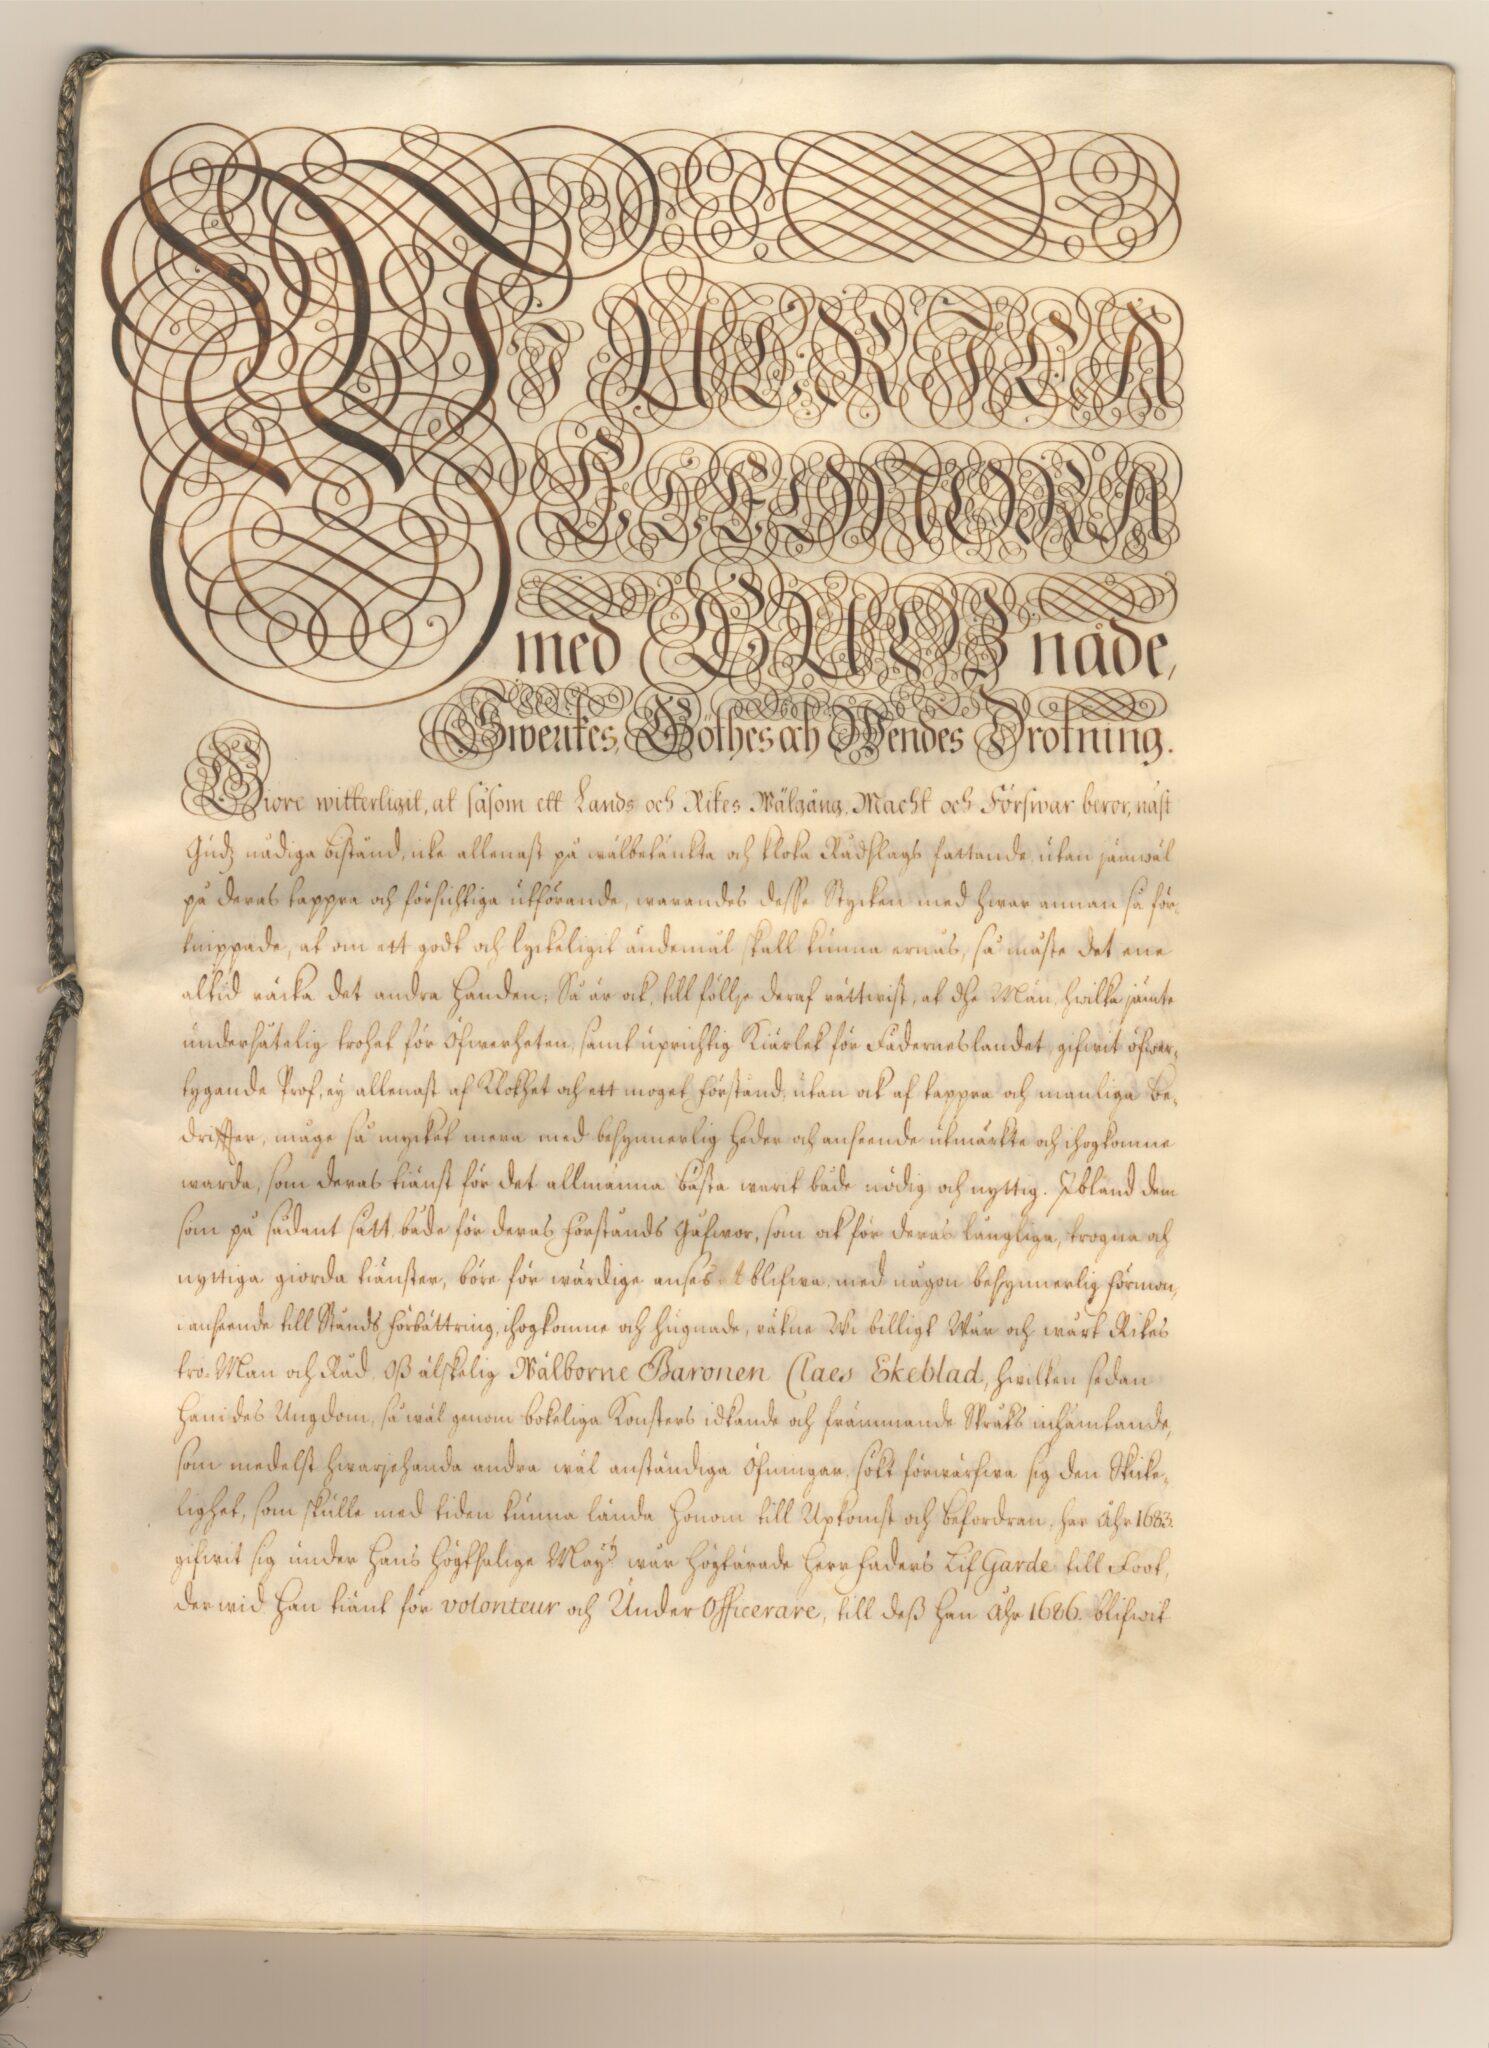 WI ULRICA
ELEONORA
med GUDZ nåde,
Swerikes, Göthes och Wendes Drotning.
Giöre witterligit, at såsom ett Lands och Rikes Wälgång, Macht och Förswar beror, näst
Gudz nådiga bistånd, icke allenast på wälbetänckta och kloka Rådhslags fattande, utan jämwäl
på deras tappra och försichtiga utförande, warandes desse Stycken med hwar annan så för-
knippade, at om ett godt och lyckeligit ändemål skall kunna ernås, så måste det ene
altid räcka det andra handen; Så är ock, till föllje deraf rättwist, at dhe Män, hwilka jämte
undersåtelig trohet för Öfwerheten, samt uprichtig Kiärlek för Fäderneslandet, gifwit öfwer-
tygande Prof, ey allenast af Klokhet och ett moget förstånd, utan ock af tappra och manliga be-
drifter, måge så mycket mera med besynnerlig heder och anseende utmärkte och ihogkomne
warda, som deras tiänst för det allmänna bästa warit både nödig och nyttig. Ibland dem
som på sådant sätt, både för deras förstånds Gåfwor, som ock för deras långliga, trogna och
nyttiga giorda tiänster, böre för wärdige anses at blifwa, med någon besynnerlig förmon,
i anseende till Stånds förbättring, ihogkomne och hugnade, räkne Wi billigt Wår och wårt Rikes
tro-Man och Råd, Oß älskelig Wälborne Baronen Claes Ekeblad, hwilken sedan
han i des Ungdom, så wäl genom bokeliga Konsters idkande och främmande Språks inhämtande,
som medelst hwarjehanda andra wäl anständiga öfningar, sökt förwärfwa sig den Skicke-
lighet, som skulle med tiden kunna lända honom till Upkomst och befordran, har Åhr 1683.
gifwit sig under Hans Högtsalige May:tz wår Högtärade Herr Faders Lif Garde till Foot,
der wid han tiänt för volonteur och Under Officerare, till deß han Åhr 1686. blifwit